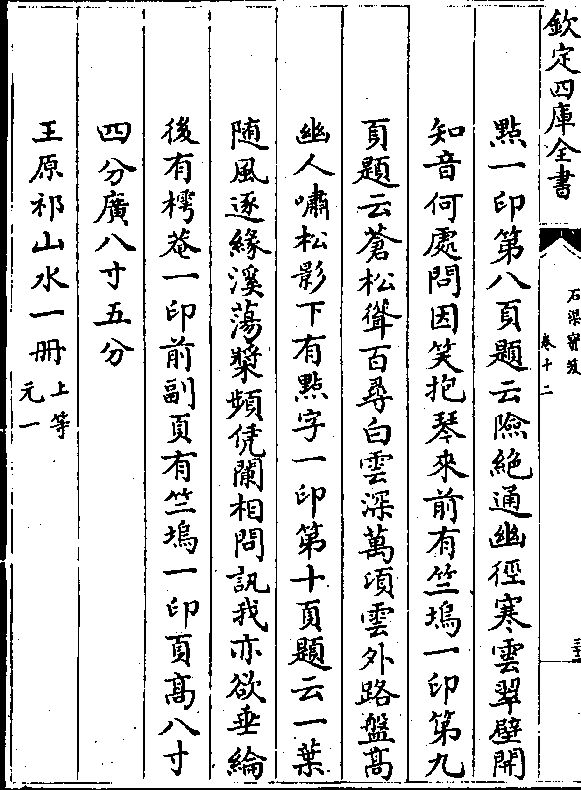 欽定四庫全書
石渠寳笈
卷十二
點一印第八頁題云險絶通幽徑寒雲翠壁開
知音何處問因笑抱琴來前有竺塢一印第九
頁題云蒼松聳百尋白雲深萬頃雲外路盤髙
幽人嘯松影下有點字一印第十頁題云一葉
随風逐緣溪蕩槳頻凭闌相問訊我亦欲垂綸
後有樗菴一印前副頁有竺塢一印頁髙八寸
四分廣八寸五分
王原祁山水一冊上等
元一